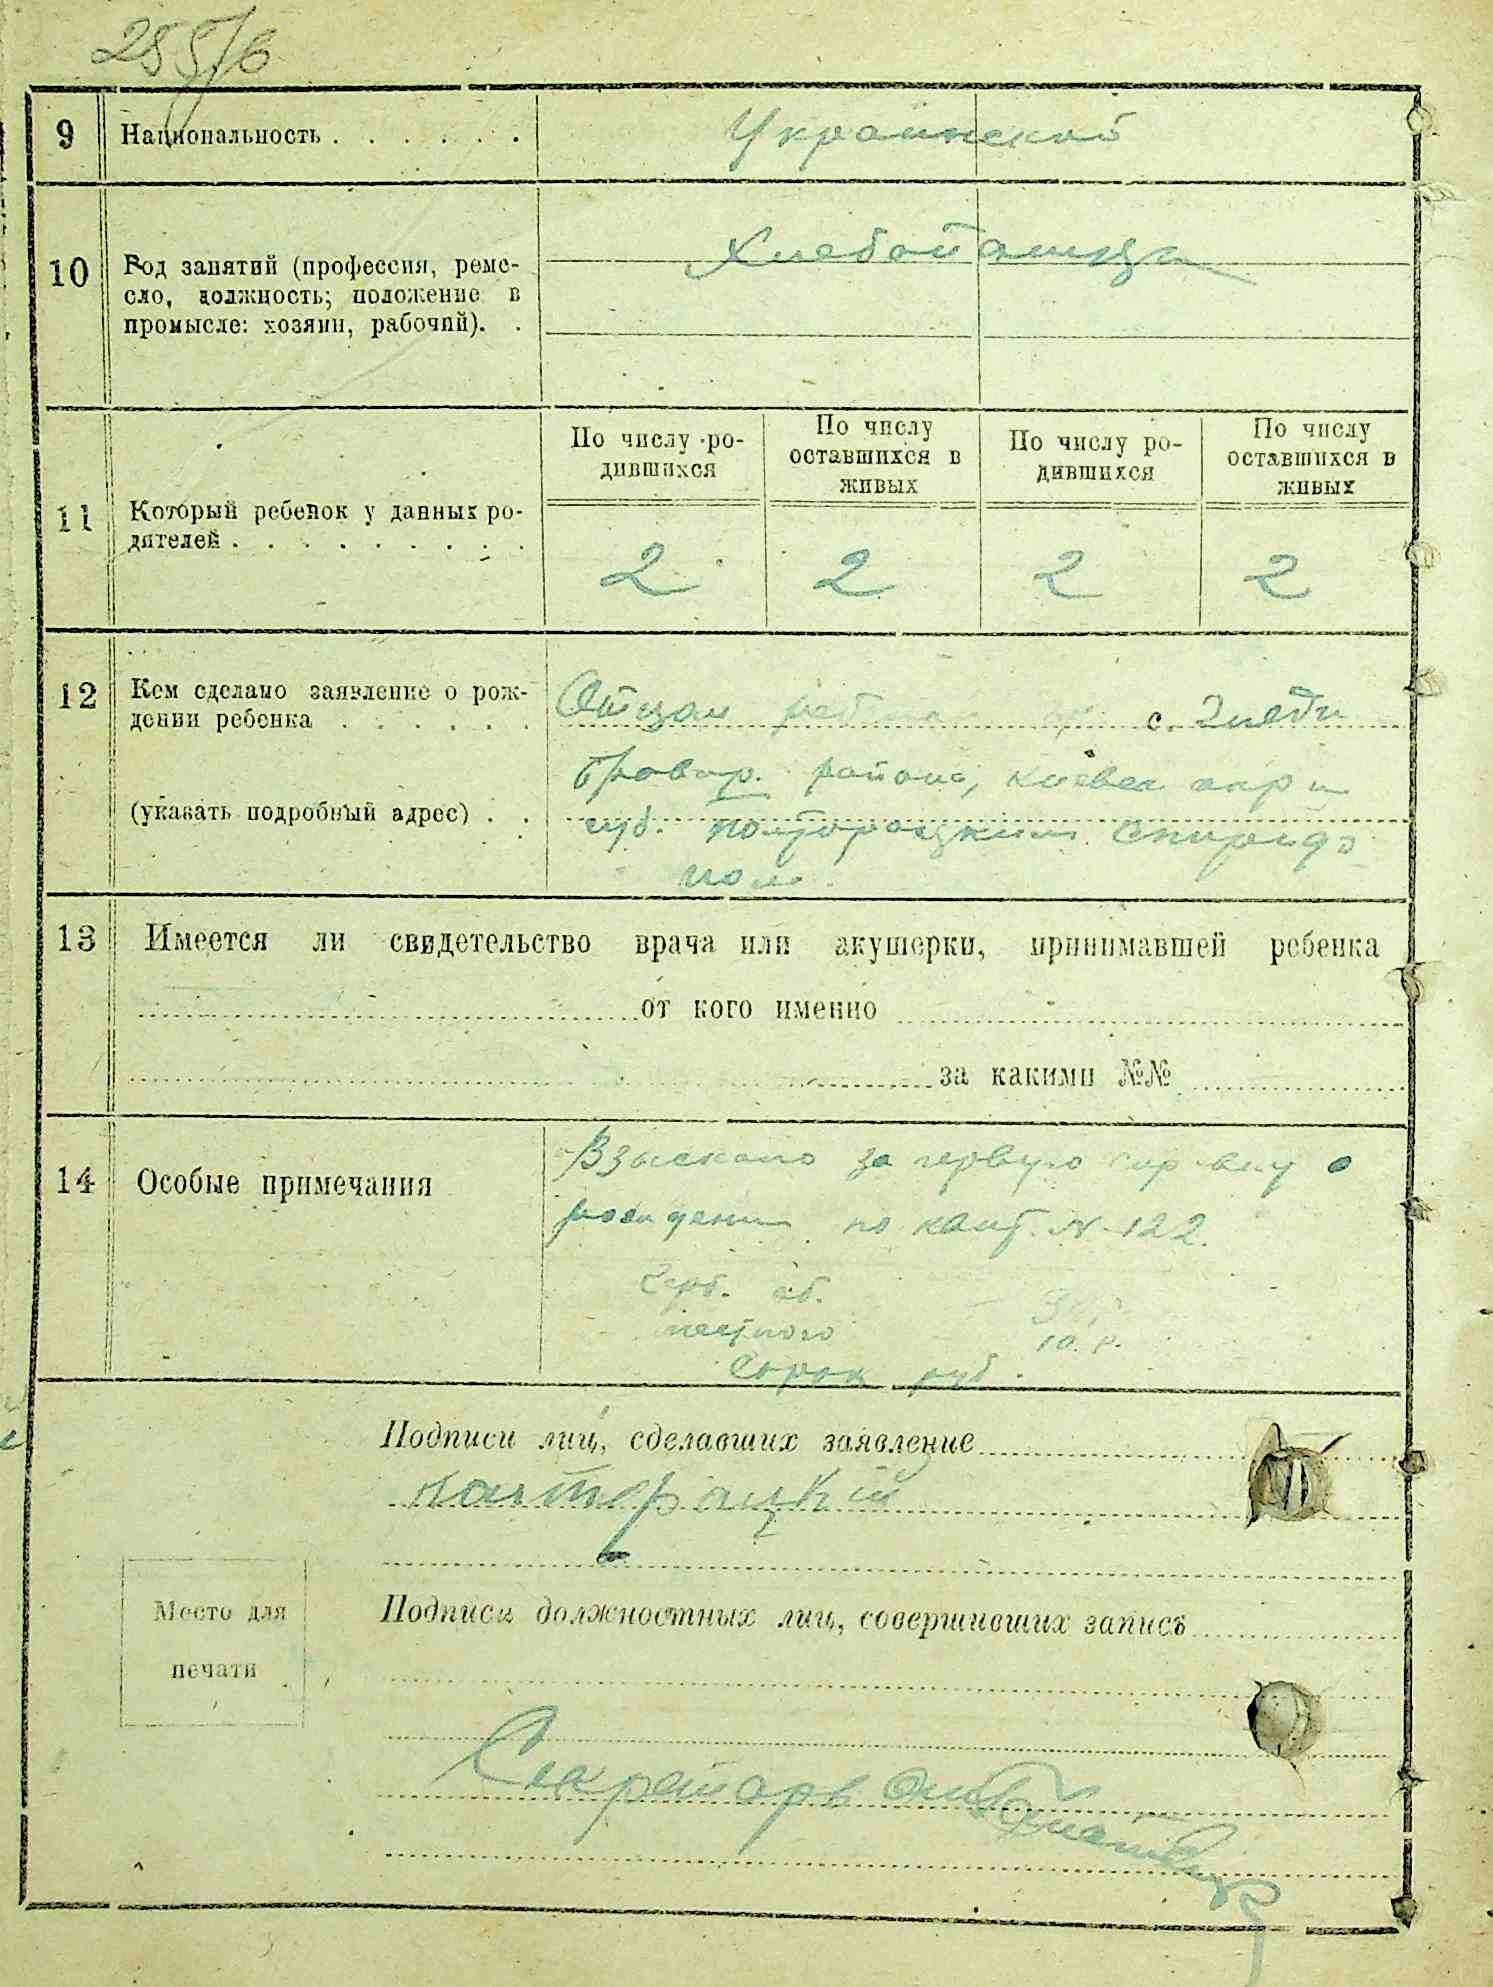 255/6
9 Национальность . . . . . .
Украинской
10 Род занятий (профессия, ремесло, должность; положение в промысле: хозяин, рабочий). .
Хлебопашцы
По числу ро-
дившихся
По числу
оставшихся в
живых
По числу ро-
дившихся
По числу
оставшихся в
живых
11 Который ребенок у данных ро-
дителей . . . . . . . . .
2 2 2 2
12 Кем сделано заявление о рож-
дении ребенка . . . . . .
(указать подробный адрес) . .
Отцом с.
Бровар. района, Киевск окр и
губ. Полторацким Спиридо
ном.
13 Имеется ли свидетельство врача или акушерки, принимавшей ребенка
от кого именно
за какими №№
14 Особые примечания
Взыскано за первую справку о
рождении по квит. N 122.
Герб. сб.
местного 10. р.
Сорок руб.
Подписи лиц, сделавших заявление
Полторацкий
Место для
печати
Подписи должностных лиц, совершивших запись
Секретарь